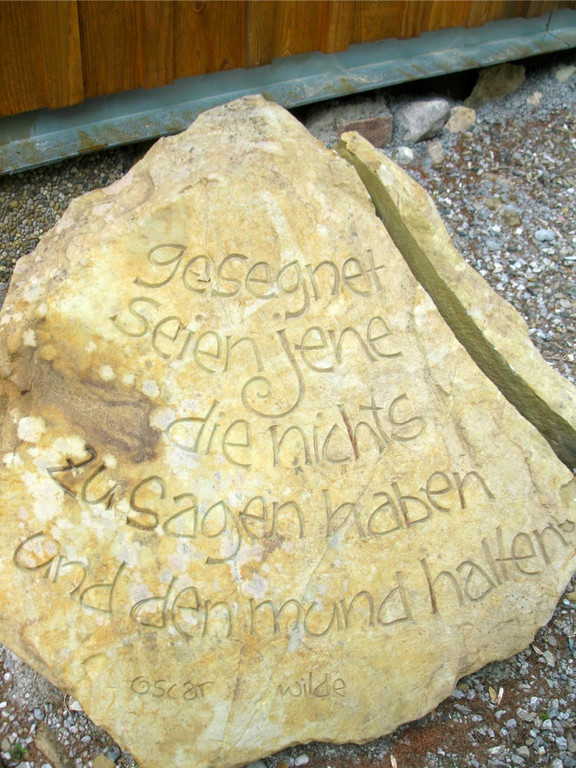 gesegnet
seien jene
die nichts
zu sagen haben
und den mund halten
oscar wilde